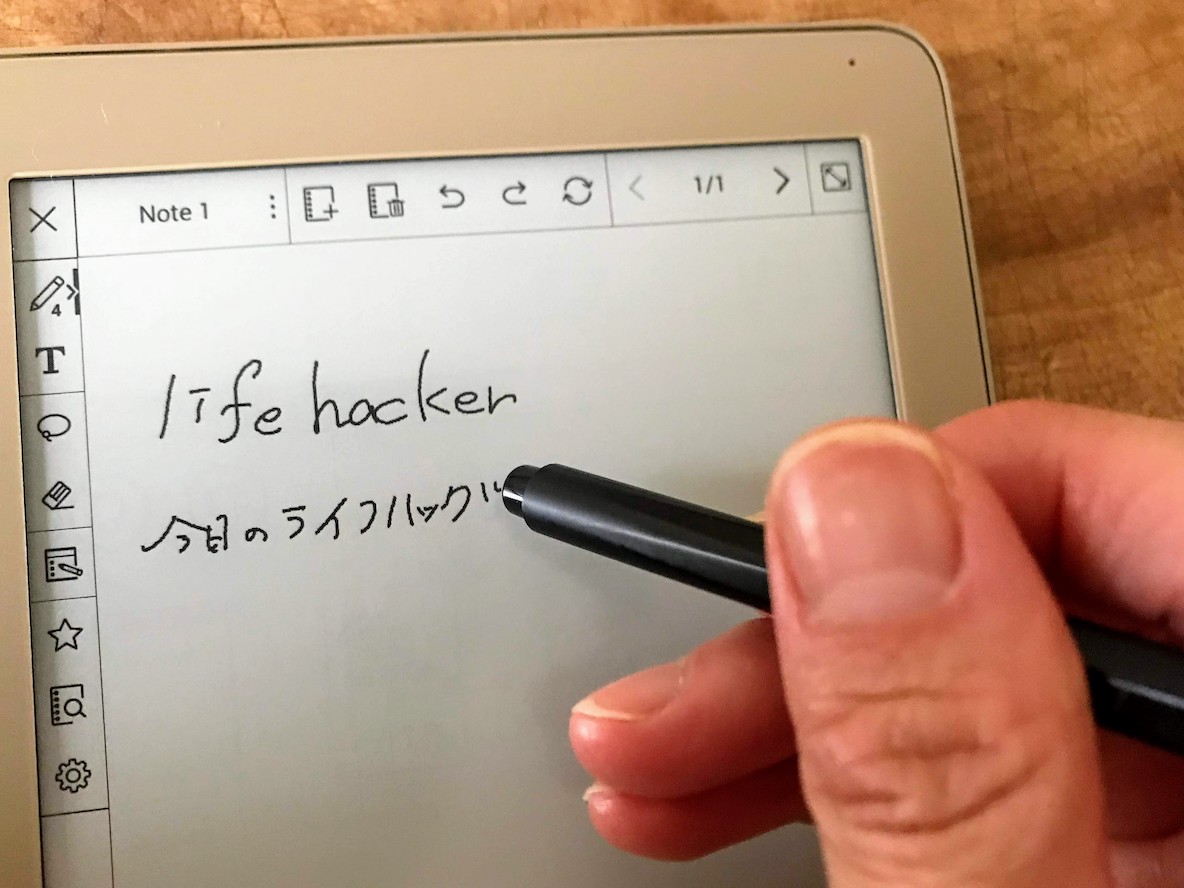 Note 1
1/1
4
T
life hacker
今日のライフハック